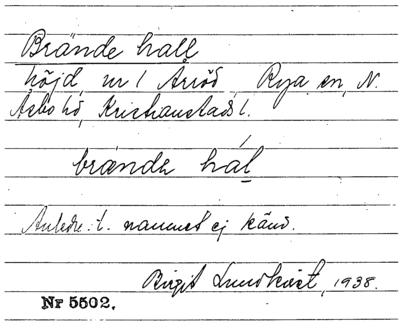 Brände hall
höjd, nr 1 Årröd, Rya sn, N.
Åsbo hd, Kristianstads l.
brände hál
Anledn. t. namnet ej känd.
Birgit Lundkvist, 1938.
Nr 5502.